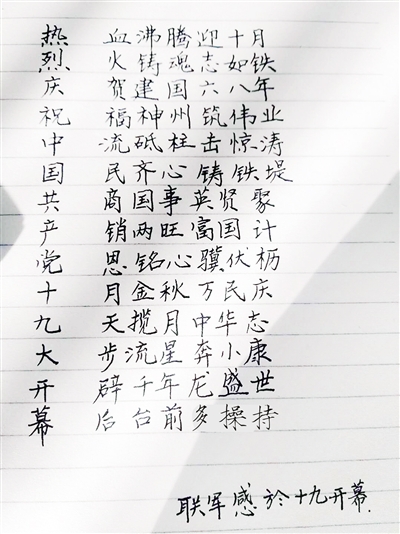 热 血沸腾迎十月
烈 火铸魂志如铁
庆 贺建国六八年
祝 福神州筑伟业
中 流砥柱击惊涛
国 民齐心铸铁堤
共 商国事英贤聚
产 销两旺富国计
党 恩铭心骥伏枥
十 月金秋万民庆
九 天揽月中华志
大 步流星奔小康
开 辟千年龙盛世
幕 后台前多操持
联军感於十九开幕